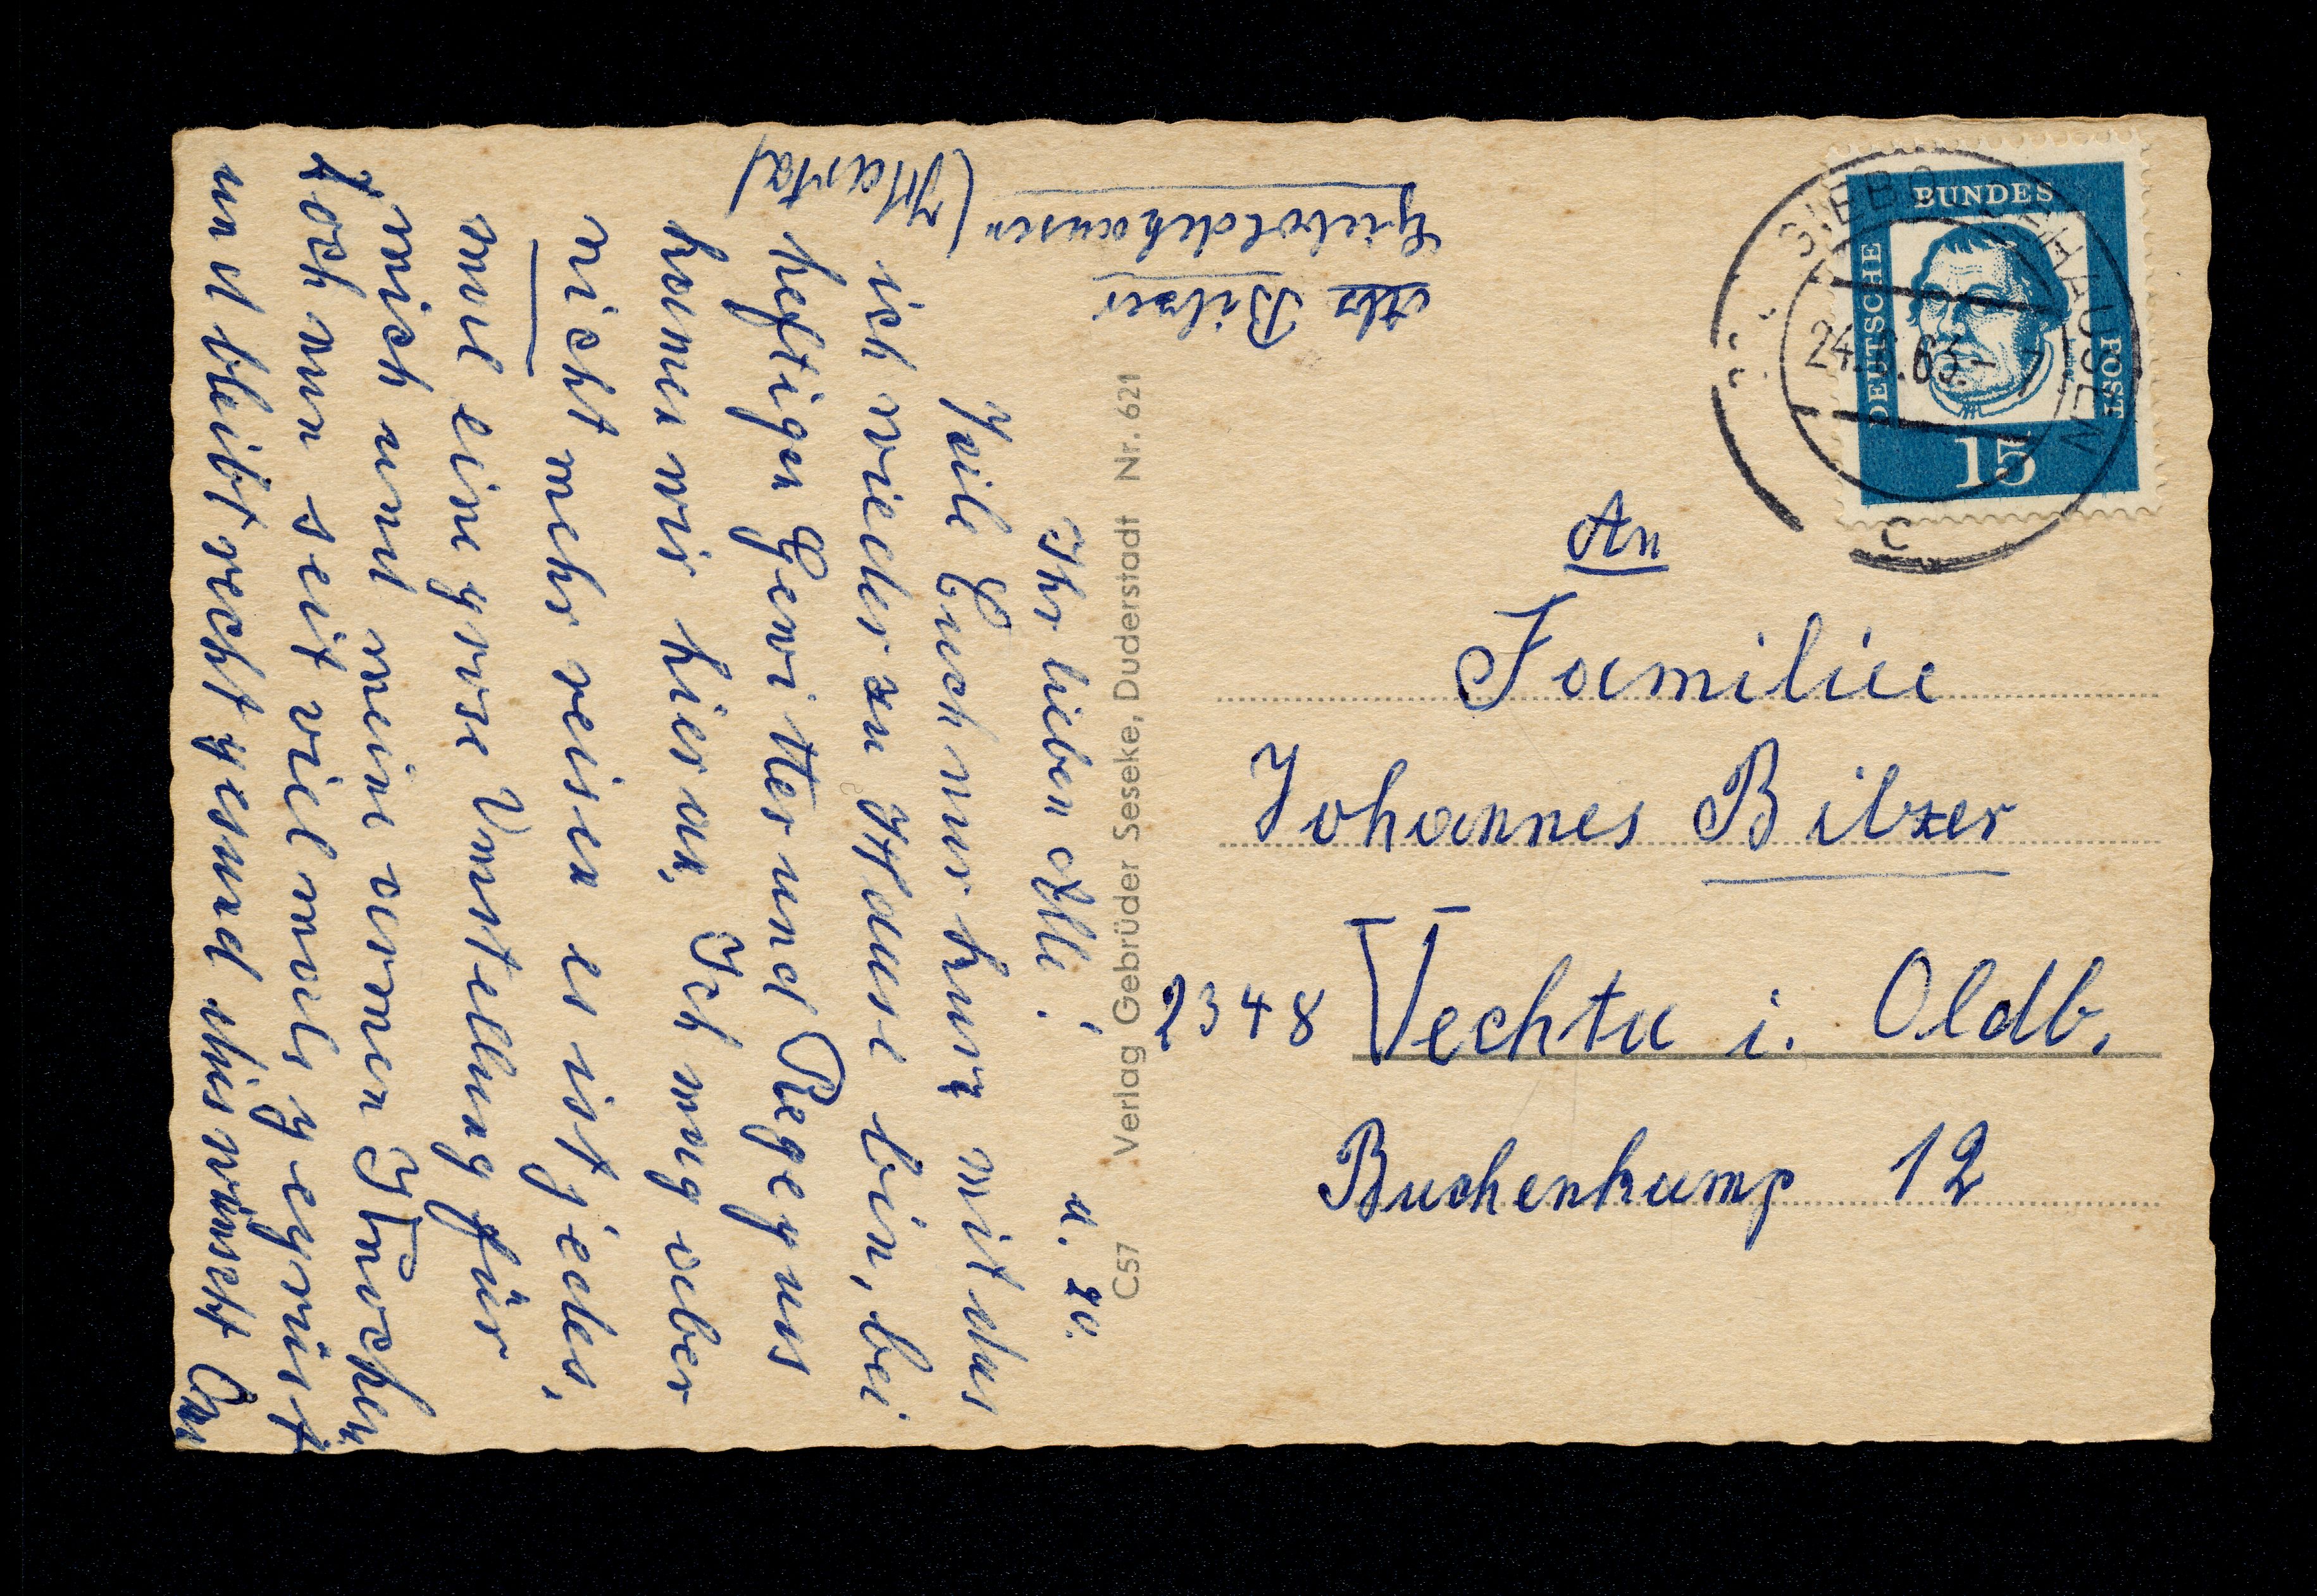 Ihr lieben Alle! u. zu.
Teile Euch nur kurz mit das
ich wieder zu Hause bin, bei
heftigen Gewitter und Regen uns
kamen wir hier an, Ich mag aber
nicht mehr reisen es ist jedes,
mal eine grose Vorstellung für
mich und meine armen Knochen
Doch nun seit vielmals gegrüst
und bleibt recht gesund dies wünscht
(Harz)
Abs Bilzer
Gieboldehausen
C57 Verlag Gebrüder Seseke, Duderstadt Nr. 621
DEUTSCHE BUNDES POST
15
24. .63.- 7
C
An
Familie
Johannes Bilzer
2348 Vechta i. Oldb.
Buchenkamp 12